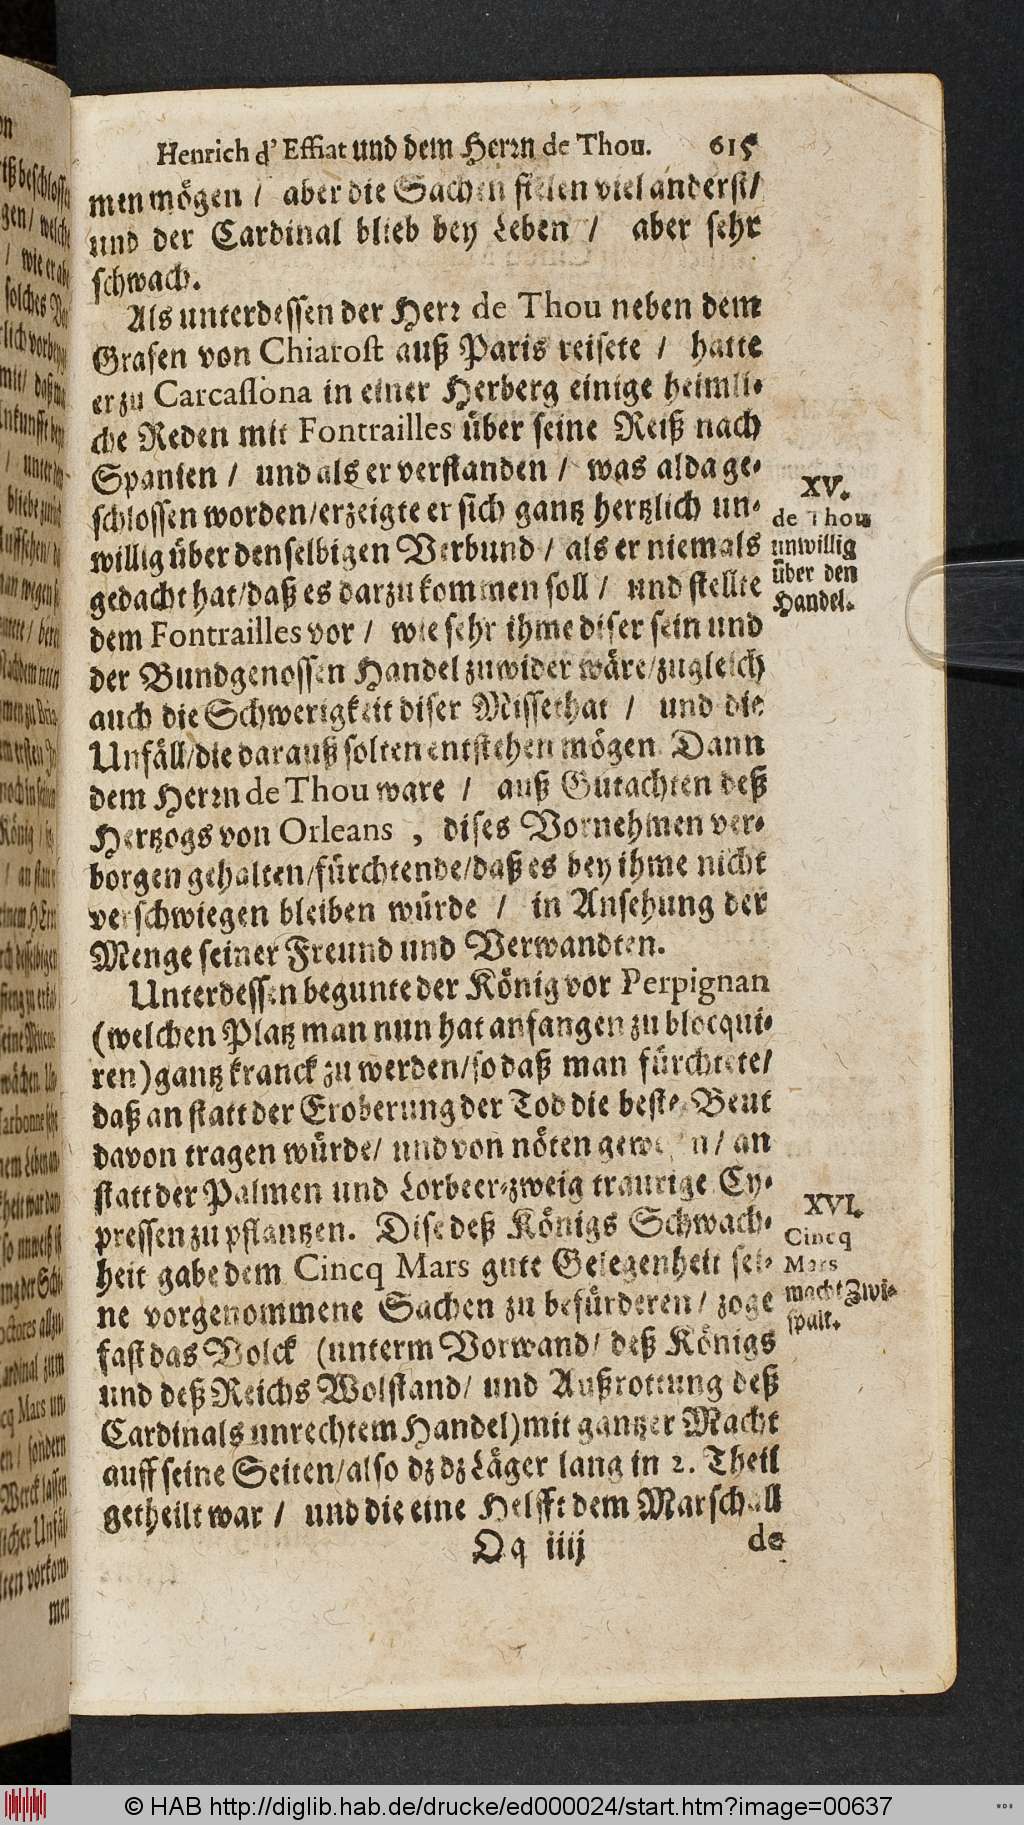 Henrich d' Effiat und dem Herꝛn de Thou. 615
men mögen / aber die Sachen fielen viel anderst/
und der Cardinal blieb bey Leben / aber sehr
schwach.
Als unterdessen der Herꝛ de Thou neben dem
Grafen von Chiarost auß Paris reisete / hatte
er zu Carcassona in einer Herberg einige heimli-
che Reden mit Fontrailles über seine Reiß nach
Spanien / und als er verstanden / was alda ge-
schlossen worden/erzeigte er sich gantz hertzlich un-
willig über denselbigen Verbund / als er niemals
gedacht hat/daß es darzu kommen soll / und stellte
dem Fontrailles vor / wie sehr ihme diser sein und
der Bundgenossen Handel zuwider wäre/zugleich
auch die Schwerigkeit diser Missethat / und die
Unfäll/die darauß solten entstehen mögen. Dann
dem Herꝛn de Thou ware / auß Gutachten deß
Hertzogs von Orleans , dises Vornehmen ver-
borgen gehalten/fürchtende/daß es bey ihme nicht
verschwiegen bleiben würde / in Ansehung der
Menge seiner Freund und Verwandten.
XV.
de Thou
unwillig
über den
Handel.
Unterdessen begunte der König vor Perpignan
(welchen Platz man nun hat anfangen zu blocqui-
ren) gantz kranck zu werden/so daß man fürchtete/
daß an statt der Eroberung der Tod die beste Beut
davon tragen würde/ und von nöten gewesen/ an
statt der Palmen und Lorbeer-zweig traurige Cy-
pressen zu pflantzen. Dise deß Königs Schwach-
heit gabe dem Cincq Mars gute Gelegenheit sei-
ne vorgenommene Sachen zu befürderen/ zoge
fast das Volck (unterm Vorwand/ deß Königs
und deß Reichs Wolstand/ und Außrottung deß
Cardinals unrechtem Handel) mit gantzer Macht
auff seine Seiten/also dz dz Läger lang in 2. Theil
getheilt war / und die eine Helfft dem Marschall
XVI.
Cincq
Mars
macht Zwi-
spalt.
Qq iiij de
© HAB http://diglib.hab.de/drucke/ed000024/start.htm?image=00637